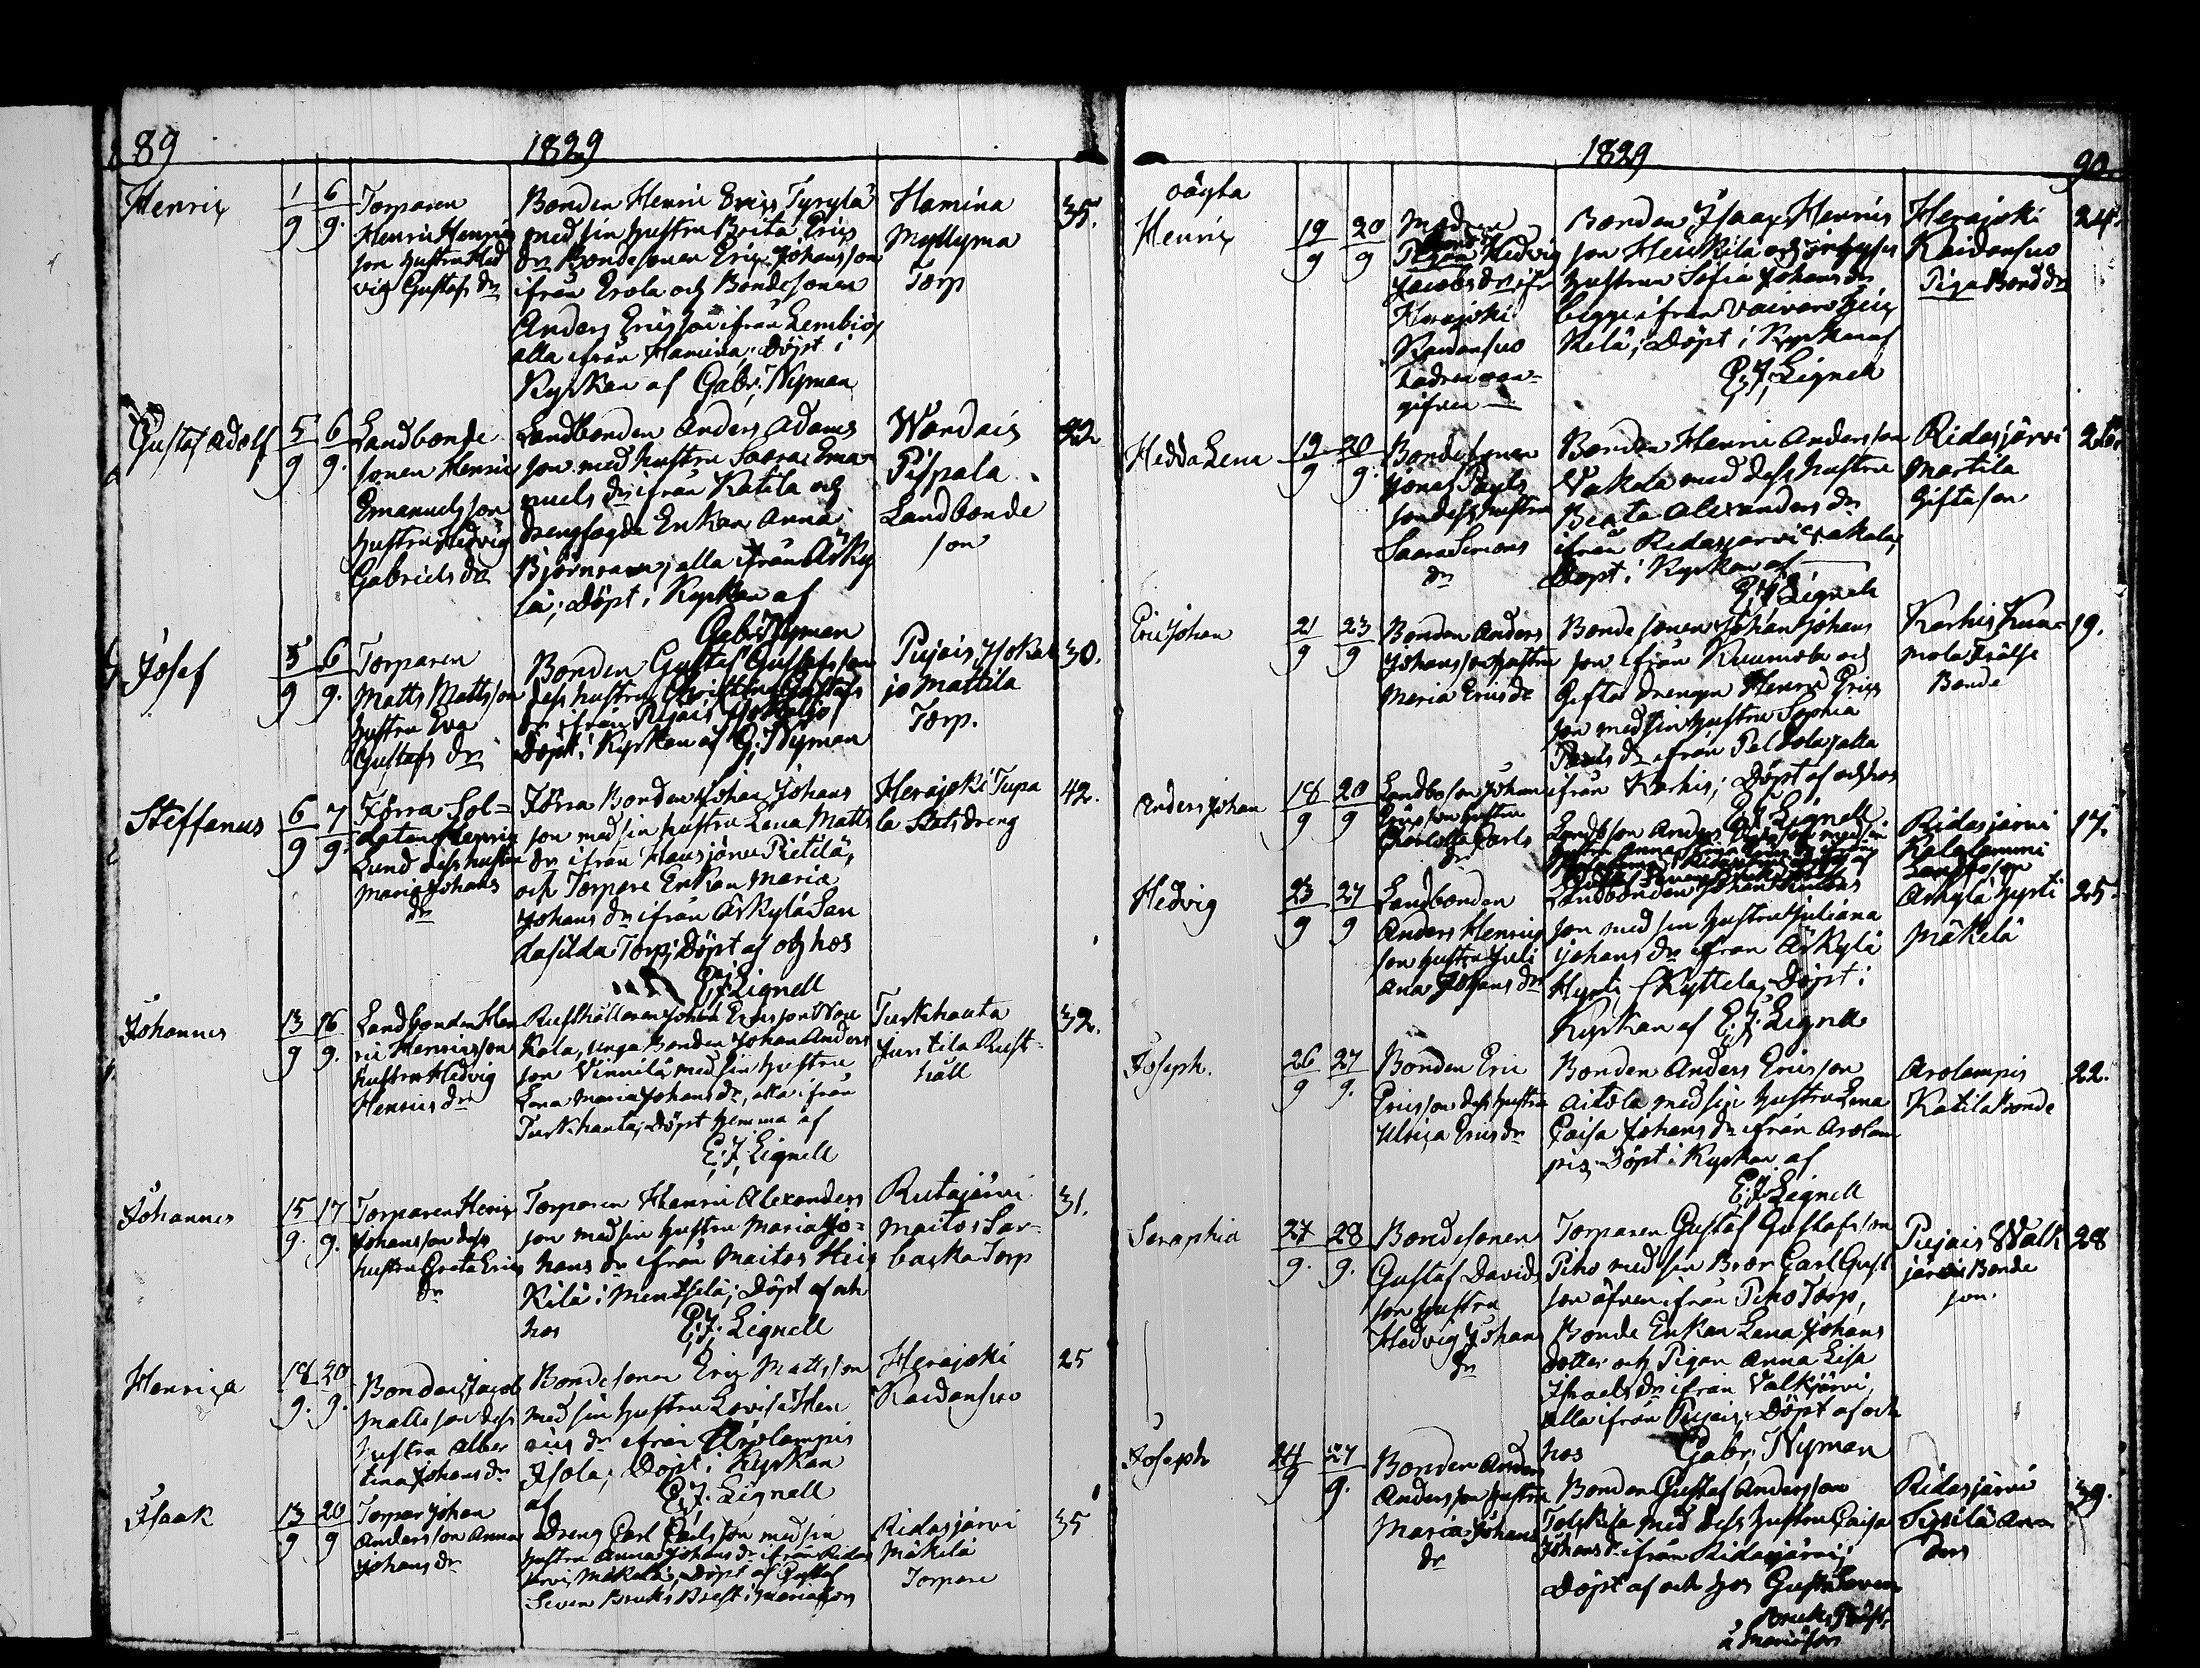 89
1829
Henrix
1/9
6/9.
Torparen
Henric Henrics
son hustru Hed
vig Gustafs dr
Bonden Henric Erics Tyrylä
med sin hustru Brita Erics
dr Bondesonen Eric Johansson
ifrån Erola och Bondesonen
Anders Ericsson ifrån Lembiois
alla ifrån Hamina; Döpt i
Kyrkan af Gabr; Nyman
Hamina
Myllyma
Torp
35.
Gustaf Adolf
5/9
6/9.
Landbonde
sonen Henric
Emanuelsson
hustru Hedvig
Gabriels dr
Landbonden Anders Adams
son med hustru Saara Ema
nuels dr ifrån Katila och
Enkan Anna
alla ifrån Arky
lä; Döpt i Kyrkan af
Gabr; Nyman
Wardais
Pispala
Landbonde
son
Josef
5/9
6/9.
Torparen
Matts Mattsson
hustru Eva
Gustafs dr
Bonden Gustaf Gustafsson
dess hustru Christina Gustafs
dr ifrån Pujais
Döpt i Kyrkan af G; Nyman
Pujais
jo Mattila
Torp.
30.
Steffanus
6/9
7/9.
Förra Sol=
daten Henric
Lund dess hustru
Maria Johans
dr
Förra Bonden Johan Johans
son med sin hustru Lena Matts
dr ifrån Hausjärvi Pietilä,
och Torpare Enkan Maria
Johans dr ifrån Arkylä San
Torp; Döpt af och hos
E; J; Lignell
Herajoki Tupa
la Statsdreng
42.
Johannes
13/9
16/9.
Landbonden Hen
ric Henricsson
hustru Hedvig
Henrics dr
Rusthållaren Johan Ericsson
unga Bonden Johan Anders
son Vinnilä med sin hustru
Lena Maria Johans dr, alla ifrån
Turkhauta; Döpt hemma af
E; J; Lignell
Turkhauta
Juntila Rust=
håll
32.
Johannes
15/9.
17/9.
Torparen Henric
Johansson dess
hustru Greta Erics
dr
Torparen Henric Alexanders
son med sin hustru Maria Jo=
hans dr ifrån Maitos Heic
Kilä i Mentselä; Döpt af och
hos E; J; Lignell
Rutajärvi
Maitos Sar=
baska Torp
31.
Henrica
18/9.
20/9.
Bonden Jacob
Mattsson dess
hustru Alber
tina Johans dr
Bondesonen Eric Mattsson
med sin hustru Lovisa Hen
rics dr ifrån Arolampis
Isola; Döpt i Kyrkan
af E; J; Lignell
Herajoki
Raidansuo
25
Isaak
13/9
20/9
Torpar Johan
Andersson Anna
Johans dr
Dreng Carl Carlsson med sin
hustru Anna Johans dr ifrån Ridas
järvi Mäkelä; Döpt af Gustaf
Seven Bruks Prest i Mariefors
Ridasjärvi
Mäkelä
Torpare
35
1829
90.
oägta
Henric
19/9
20/9
Modren
Pigan Hedvig
Jacobs dr ifr
Herajoki
Raidansuo
Fadren oan=
gifven
Bonden Isaac Henrics
son Heikkilä och
hustrun Sofia Johans dr
begge ifrån Vaiwars Heic
Kilä; Döpt i Kyrkan af
E; J; Lignell
Herajoki
Raidansuo
Piga Bond dr
24.
Hedda Lena
19/9
20/9.
Bondesonen
Jonas Pauls
son dess hustru
Saara Simons
dr
Bonden Henric Andersson
Vakala med dess hustru
Beata Alexanders dr
ifrån Ridasjärvi Vakala;
Döpt i Kyrkan af
E; J; Lignell
Ridasjärvi
Martila
Gifta son
Eric Johan
21/9
23/9
Bonden Anders
Johansson hustru
Maria Erics dr
Bonde sonen Johan Johans
son ifrån Kuumola och
Gifta drengen Henric Erics
son med sin hustru Sophia
Pauls dr ifrån Peldola; alla
ifrån Karhis; Döpt af och hos
E; J; Lignell
Karhis Kuu=
mola Frälse
Bonde
19.
Anders Johan
18/9
20/9
Landbo son Johan
Ericsson hustru
Charlotta Carls
dr
Landb son Anders
Ridasjärvi
Kalalammi
17.
Hedvig
23/9
27/9
Landbonden
Anders Henrics
son hustru Juli
ana Johans dr
Landbonden Johan
son med sin hustru Juliana
Johans dr ifrån Arkylä
Hyrti Kyttela; Döpt i
Kyrkan af E; J; Lignell
Arkylä Hyrti
Mäkelä
25.
Joseph.
26/9
27/9.
Bonden Eric
Ericsson dess hustru
Ulrica Erics dr
Bonden Anders Ericsson
Aitola med sin hustru Lena
Caisa Johans dr ifrån Arolam
pis; Döpt i Kyrkan af
E; J; Lignell
Arolampis
Katila Bonde
22.
Seraphia
27/9.
28/9.
Bondesonen
Gustaf Davids
son hustru
Hedvig Johans
dr
Torparen Gustaf Gustafsson
Piho med sin Bror Carl Gust
son äfven ifrån Piho Torp,
Bonde Enkan Lena Johans
dotter och Pigan Anna Lisa
Israels dr ifrån Valkjärvi,
alla ifrån Pujais; Döpt af och
hos Gabr; Nyman
Pujais Walk
järvi Bonde
son.
28
Joseph
24/9
27/9.
Bonden Anders
Andersson hustru
Maria Johans
dr
Bonden Gustaf Andersson
med dess hustru Caisa
Johans dr ifrån Ridasjärvi;
Döpt af och hos Gustaf Seven
Bruks Prest
i Mariefors
Ridasjärvi
An=
ders
39.